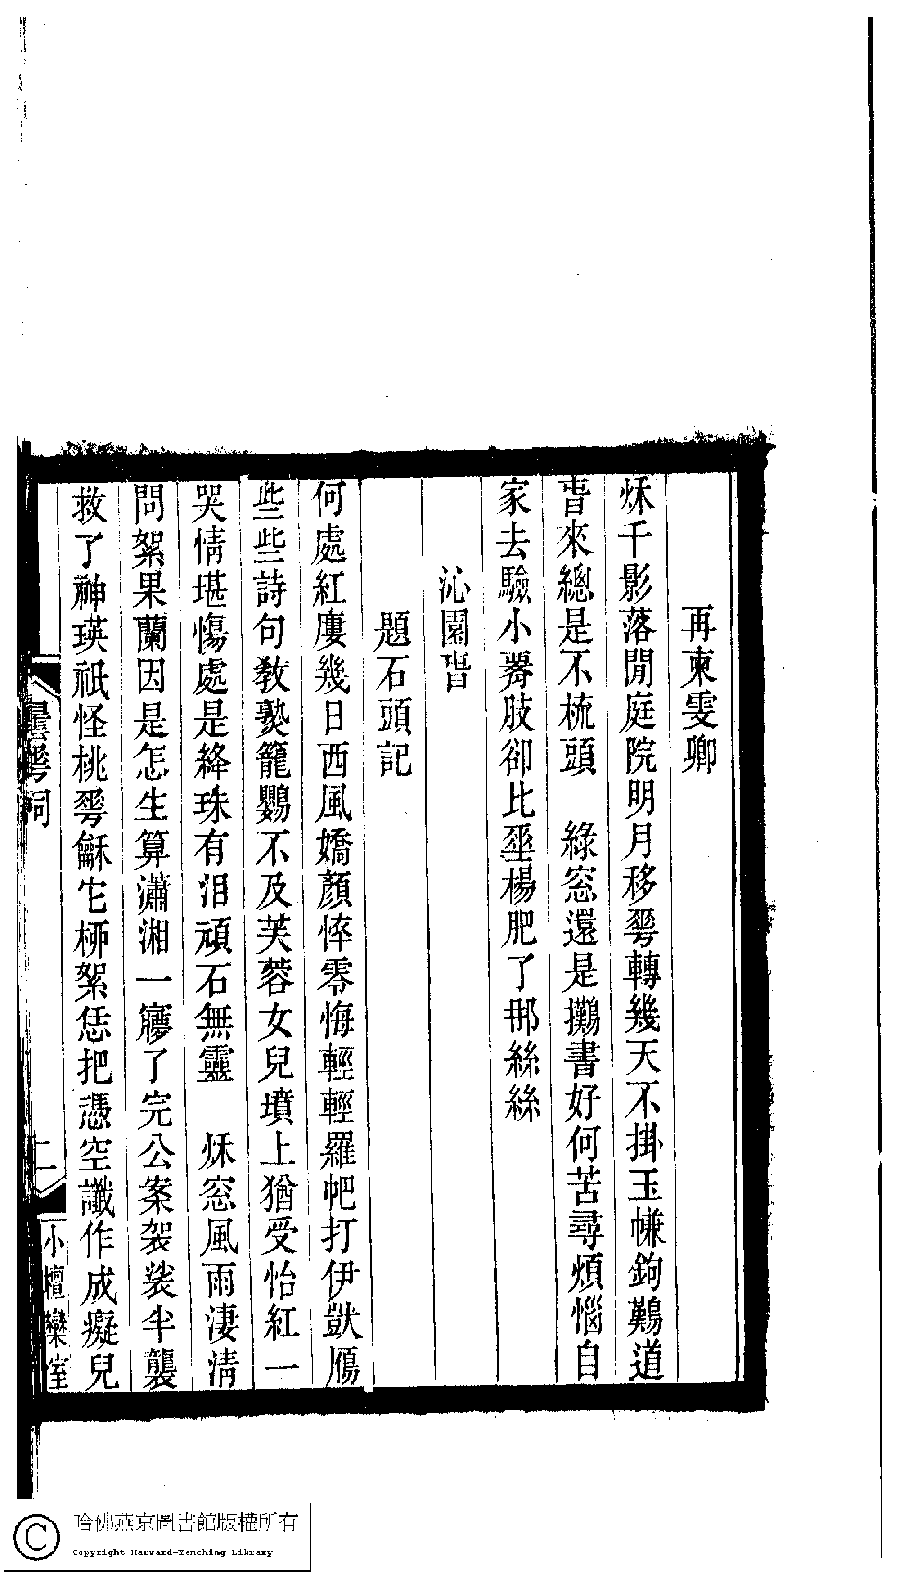 再柬雯卿
秌千影落閒庭院明月移蕚轉幾天不掛玉㡘鉤鷬道
旾來總是不梳頭　綠窓還是攤書好何苦尋煩惱自
家去驗小署肢卻比坙楊肥了那絲絲
沁園旾
題石頭記
何處紅廔幾日西風嬌顏悴零悔輕輕羅帊打伊獃鴈
些些詩句敎孰籠鸚不及芙蓉女兒墳上猶受怡紅一
哭情堪傷處是絳珠有泪頑石無靈　秌窓風雨淒清
問絮果蘭因是怎生算瀟湘一㝱了完公案袈裟半襲
救了神瑛祇怪桃蕚龢它桺絮恁把憑空讖作成癡兒
曇蕚詞
二
小檀欒室
哈佛燕京圖書館版權所有
Copyright Harvard-Yenching Library